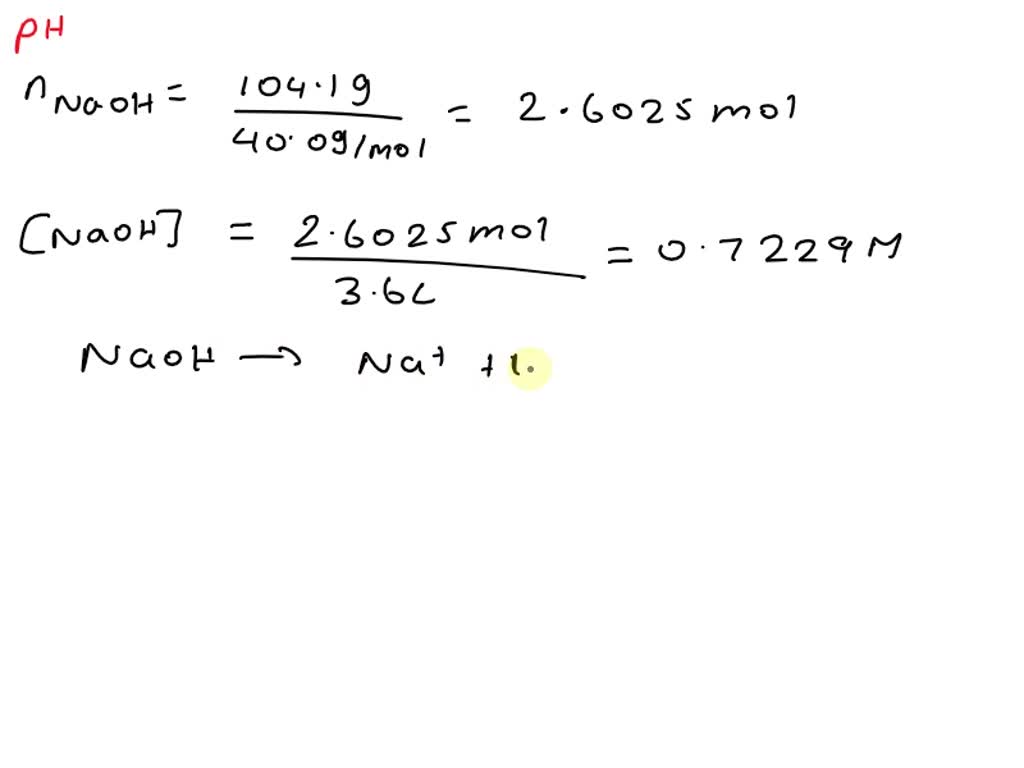 pH
nNaOH = 104.1g / 40.0g/mol = 2.6025 mol
[NaOH] = 2.6025 mol / 3.6L = 0.7229 M
NaOH → Na+ +